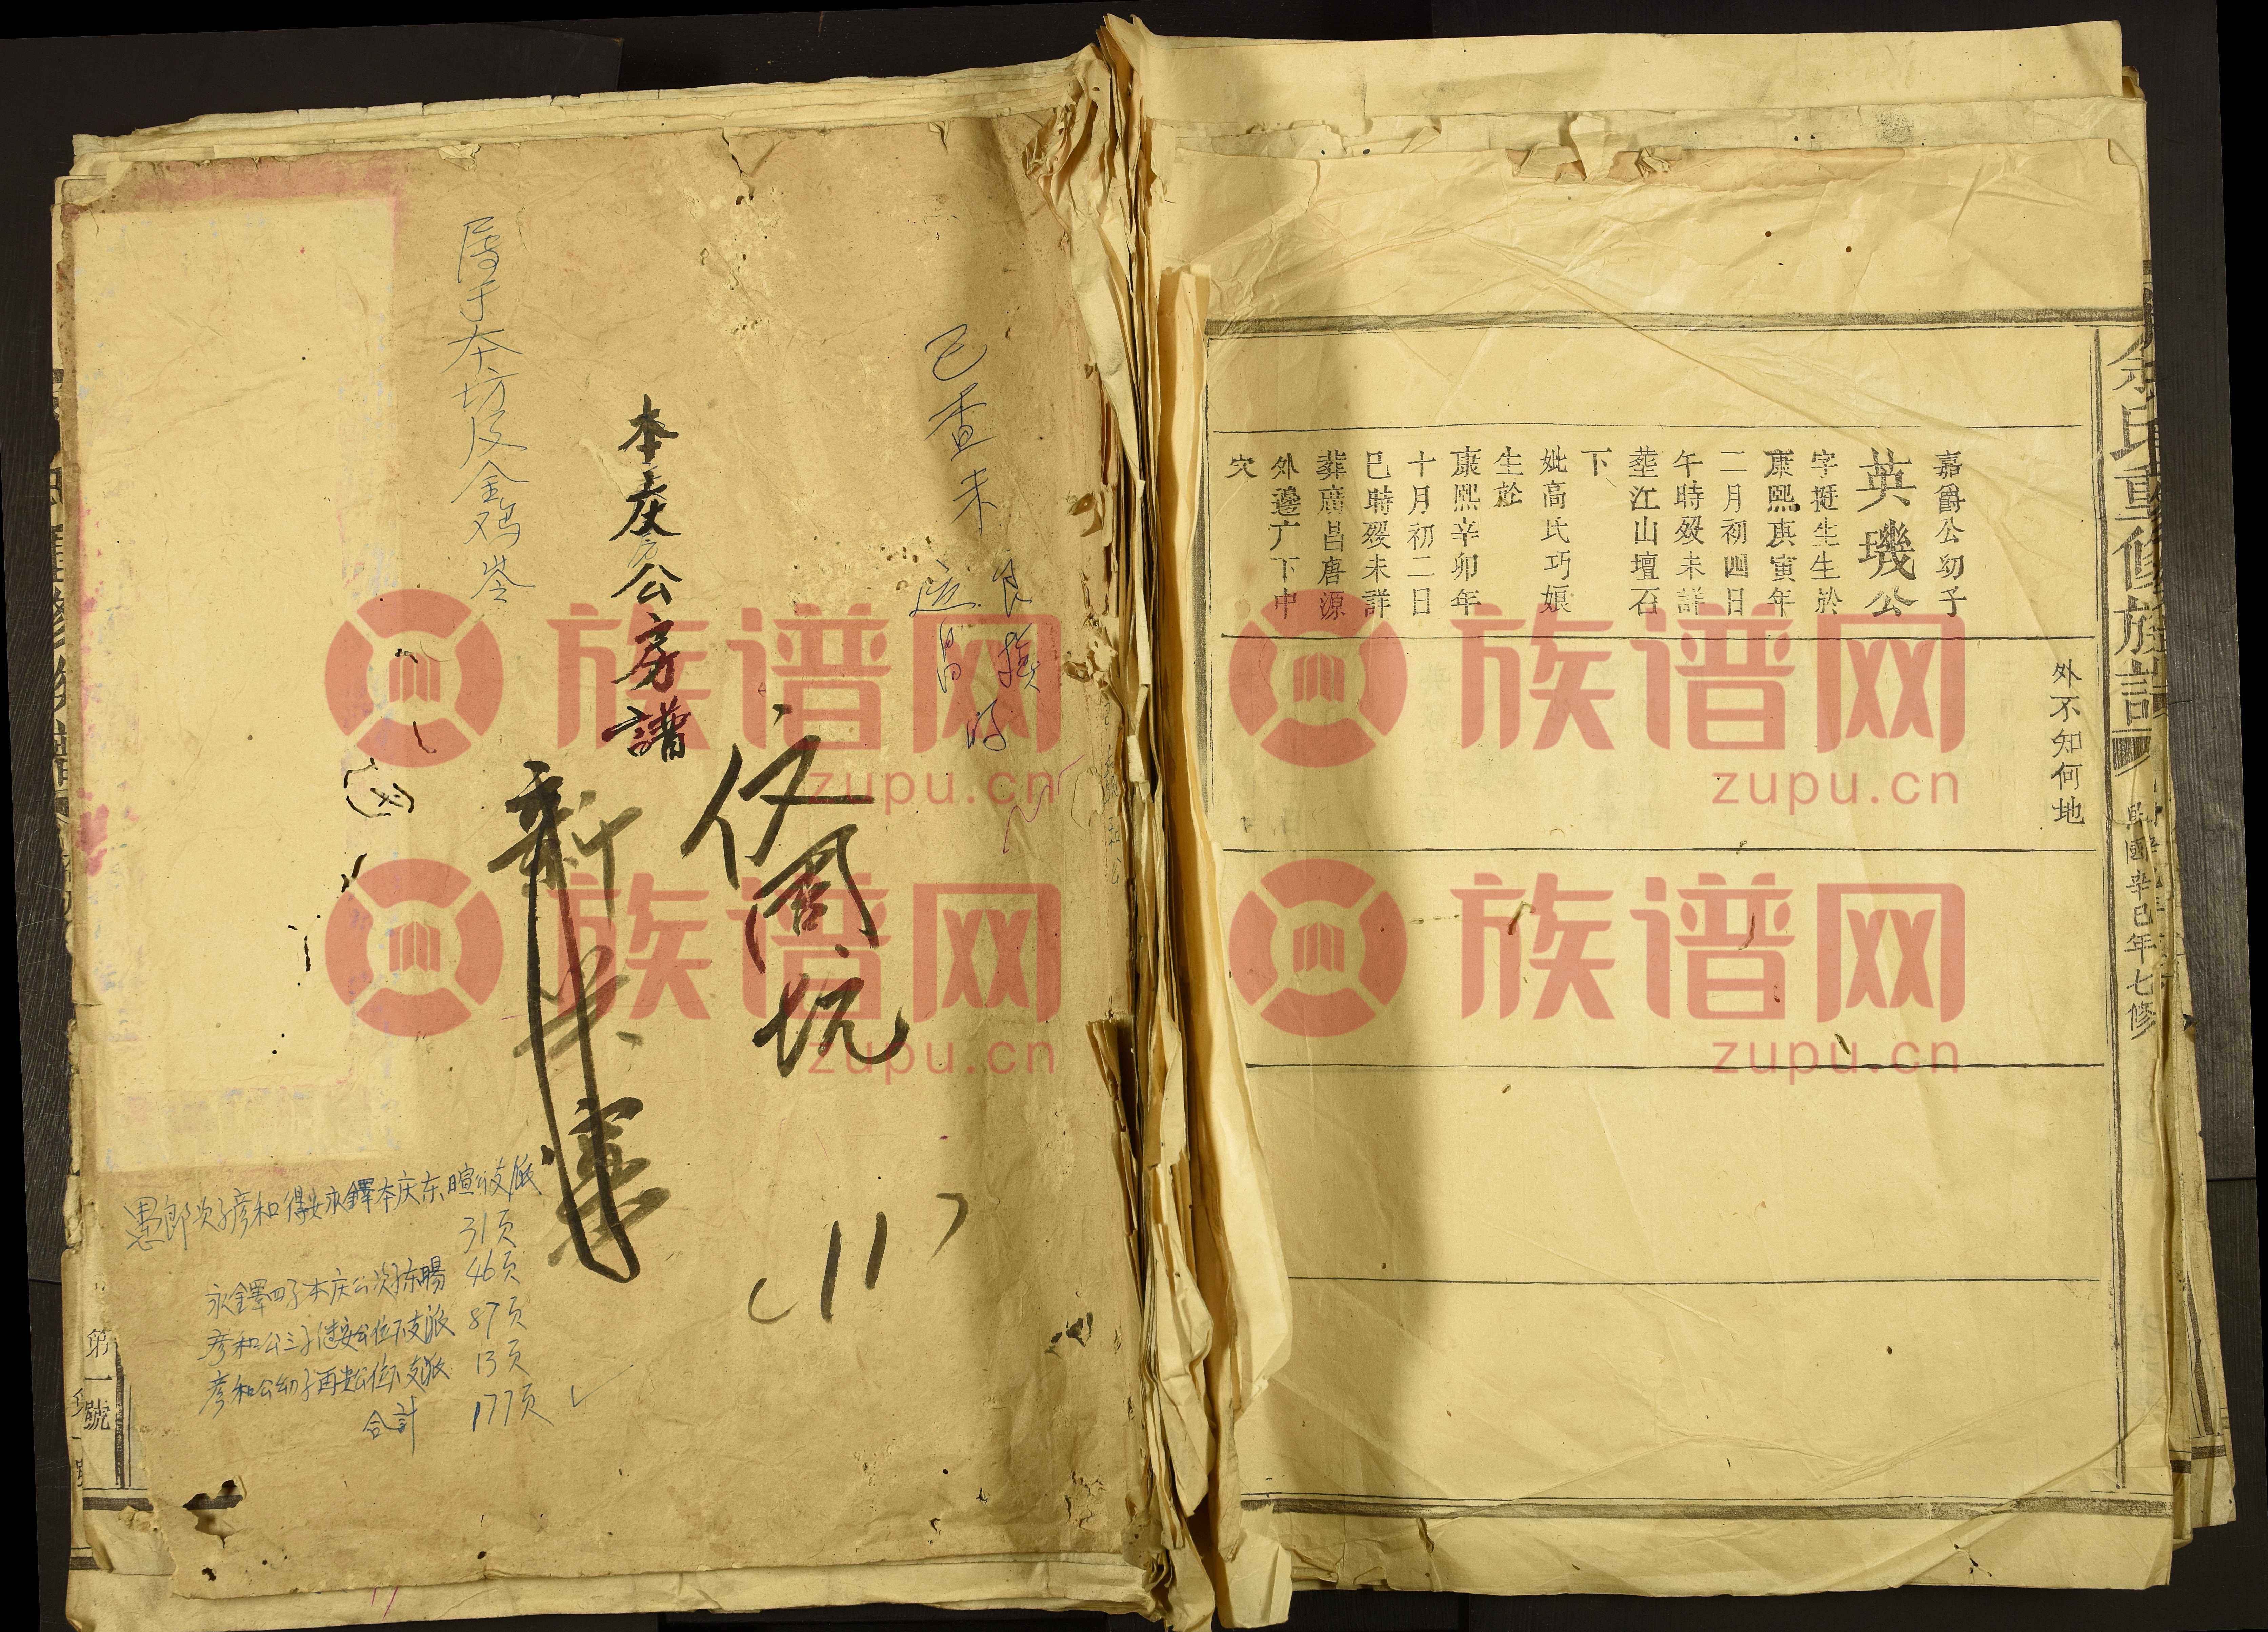 余氏重修族譜
民國辛巳年七修
外不知何地
嘉爵公幼子
英璣公
字挺生生於
康熙庚寅年
二月初四日
午時歿未詳
塟江山壇石
下
妣高氏巧娘
生於
康熙辛卯年
十月初二日
巳時歿未詳
葬廣昌唐源
外邊广下中
穴
已查来
伍周坑
本庆公房譜
新
属于本坊及金鸡岺
永鐸四子本庆公次子东暘 46页
31页
彦和公三子德安公位下支派 87页
彦和公幼子再贵公位下支派 13页
合計 177页
第一號
族谱网
zupu.cn
族谱网
zupu.cn
族谱网
zupu.cn
族谱网
zupu.cn